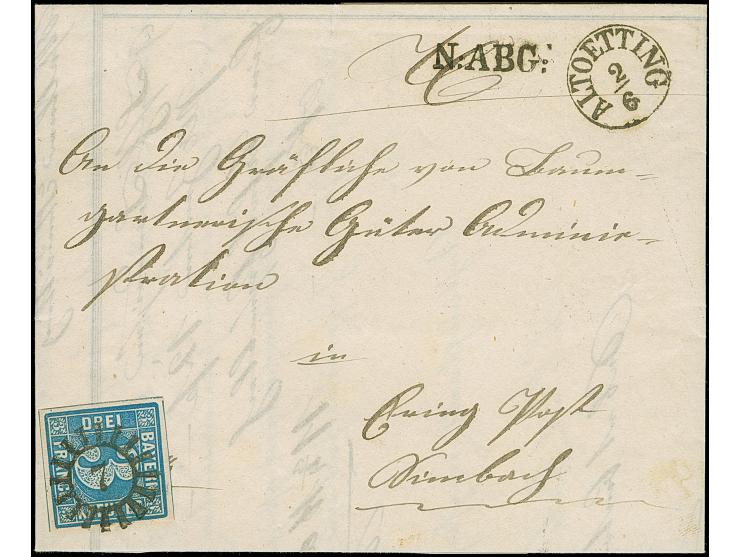 N:ABG:
ALTOETTING
2/6
An die Gräfliche von Baum-
gartnerische Güter Adminis-
tration
in
Ering Post
Simbach
DREI
BAYERN
FRANCO
3
7